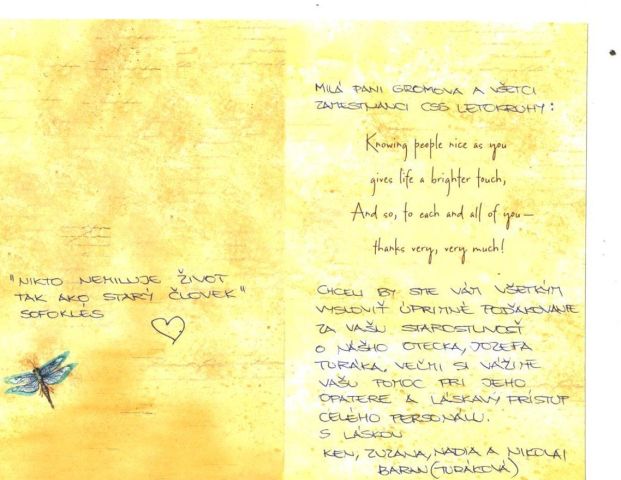 "NIKTO NEMILUJE ŽIVOT
TAK AKO STARÝ ČLOVEK"
SOFOKLÉS
MILÁ PANI GROMOVA A VŠETCI
ZAMESTNANCI CSS LETOKRUHY:
Knowing people nice as you
gives life a brighter touch,
And so, to each and all of you—
thanks very, very much!
CHCELI BY SME VÁM VŠETKÝM
VYSLOVIŤ ÚPRIMNÉ POĎAKOVANIE
ZA VAŠU STAROSTLIVOSŤ
O NÁŠHO OTECKA, JOZEFA
TURÁKA, VEĽMI SI VÁŽIME
VAŠU POMOC PRI JEHO
OPATERE A LÁSKAVÝ PRÍSTUP
CELÉHO PERSONÁLU.
S LÁSKOU
KEN, ZUZANA, NADIA A NIKOLAI
BARAN (TURÁKOVÁ)